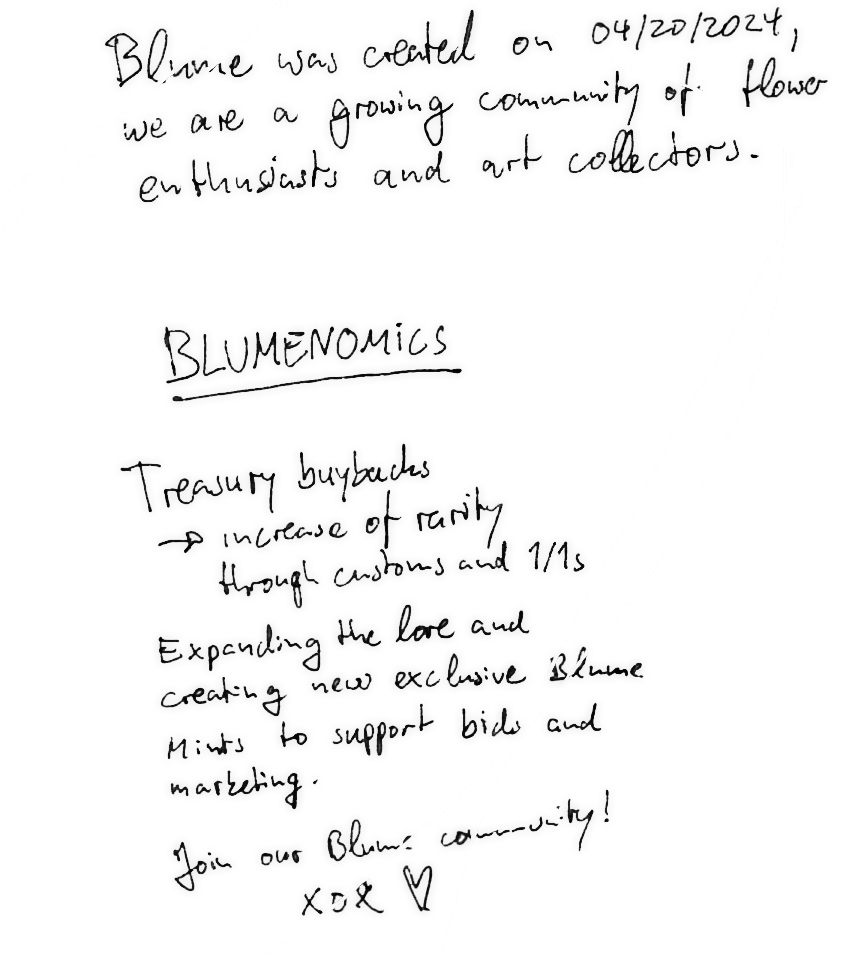 Blume was created on 04/20/2024,
we are a growing community of flower
enthusiasts and art collectors.
BLUMENOMICS
Treasury buybacks
→ increase of rarity
through customs and 1/1s
Expanding the lore and
creating new exclusive Blume
Mints to support bids and
marketing.
Join our Blume community!
XOX ♡